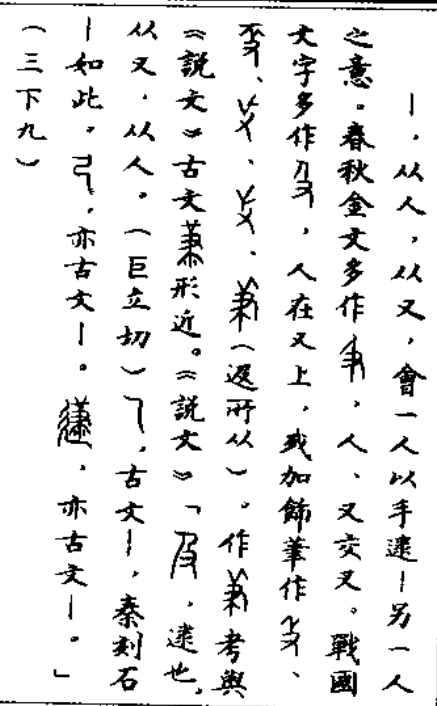 ｜，从人，从又，會一人以手逮｜另一人
之意。春秋金文多作，人、又交叉。戰國
文字多作，人在又上，或加飾筆作、
、、、（所从）。作者與
《説文》古文形近。《説文》「，逮也，
从又，从人。（巨立切），古文｜，秦刻石
｜如此。，亦古文｜。，亦古文｜。」
（三下九）